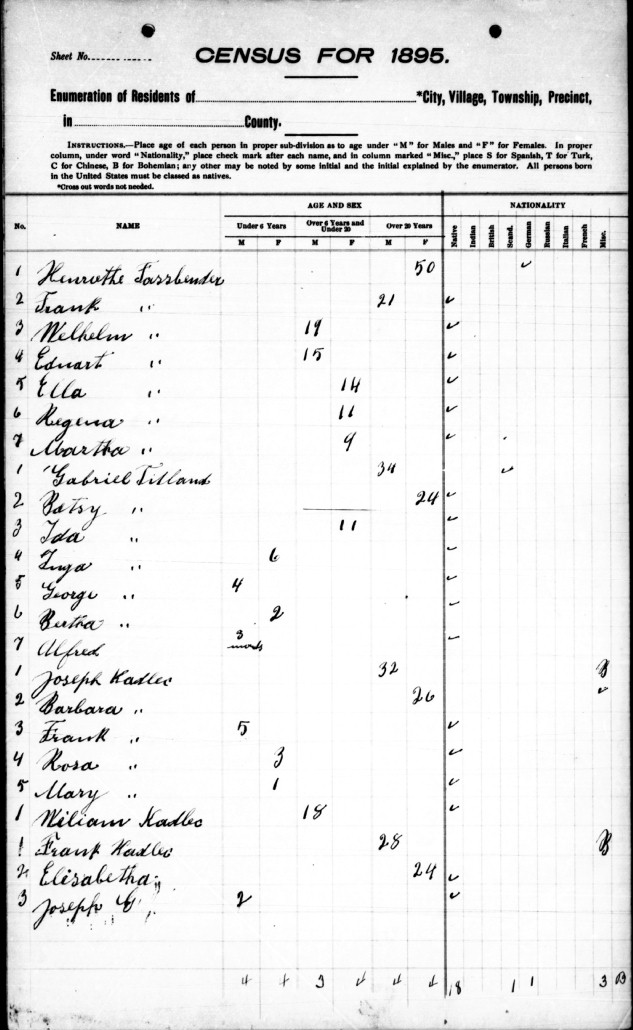 Sheet No.
CENSUS FOR 1895.
Enumeration of Residents of *City, Village, Township, Precinct,
in County.
INSTRUCTIONS.—Place age of each person in proper sub-division as to age under "M" for Males and "F" for Females. In proper
column, under word "Nationality," place check mark after each name, and in column marked "Misc.," place S for Spanish, T for Turk,
C for Chinese, B for Bohemian; any other may be noted by some initial and the initial explained by the enumerator. All persons born
in the United States must be classed as natives.
*Cross out words not needed.
AGE AND SEX NATIONALITY
No. NAME Under 6 Years Over 6 Years and Under 20 Over 20 Years Native Indian British Scand. German Russian Italian French Misc.
M F M F M F
1 Henriethe Fassbender 50 ✓
2 Frank " 21 ✓
3 Welhelm " 19 ✓
4 Eduart " 15 ✓
5 Ella " 14 ✓
6 Regena " 11 ✓
7 Martha " 9 ✓
1 Gabriel Titland 34 ✓
2 Betsy " 24 ✓
3 Ida " 11 ✓
4 Inga " 6 ✓
5 George " 4 ✓
6 Bertha " 2 ✓
7 Alfred 3 ✓
1 Joseph Kadlec 32 B
2 Barbara " 26 ✓
3 Frank " 5 ✓
4 Rosa " 3 ✓
5 Mary " 1 ✓
1 Wiliam Kadlec 18 ✓
1 Frank Kadlec 28 B
2 Elisabetha " 24 ✓
3 Joseph E " 2 ✓
4 4 3 4 4 4 18 1 1 3 B